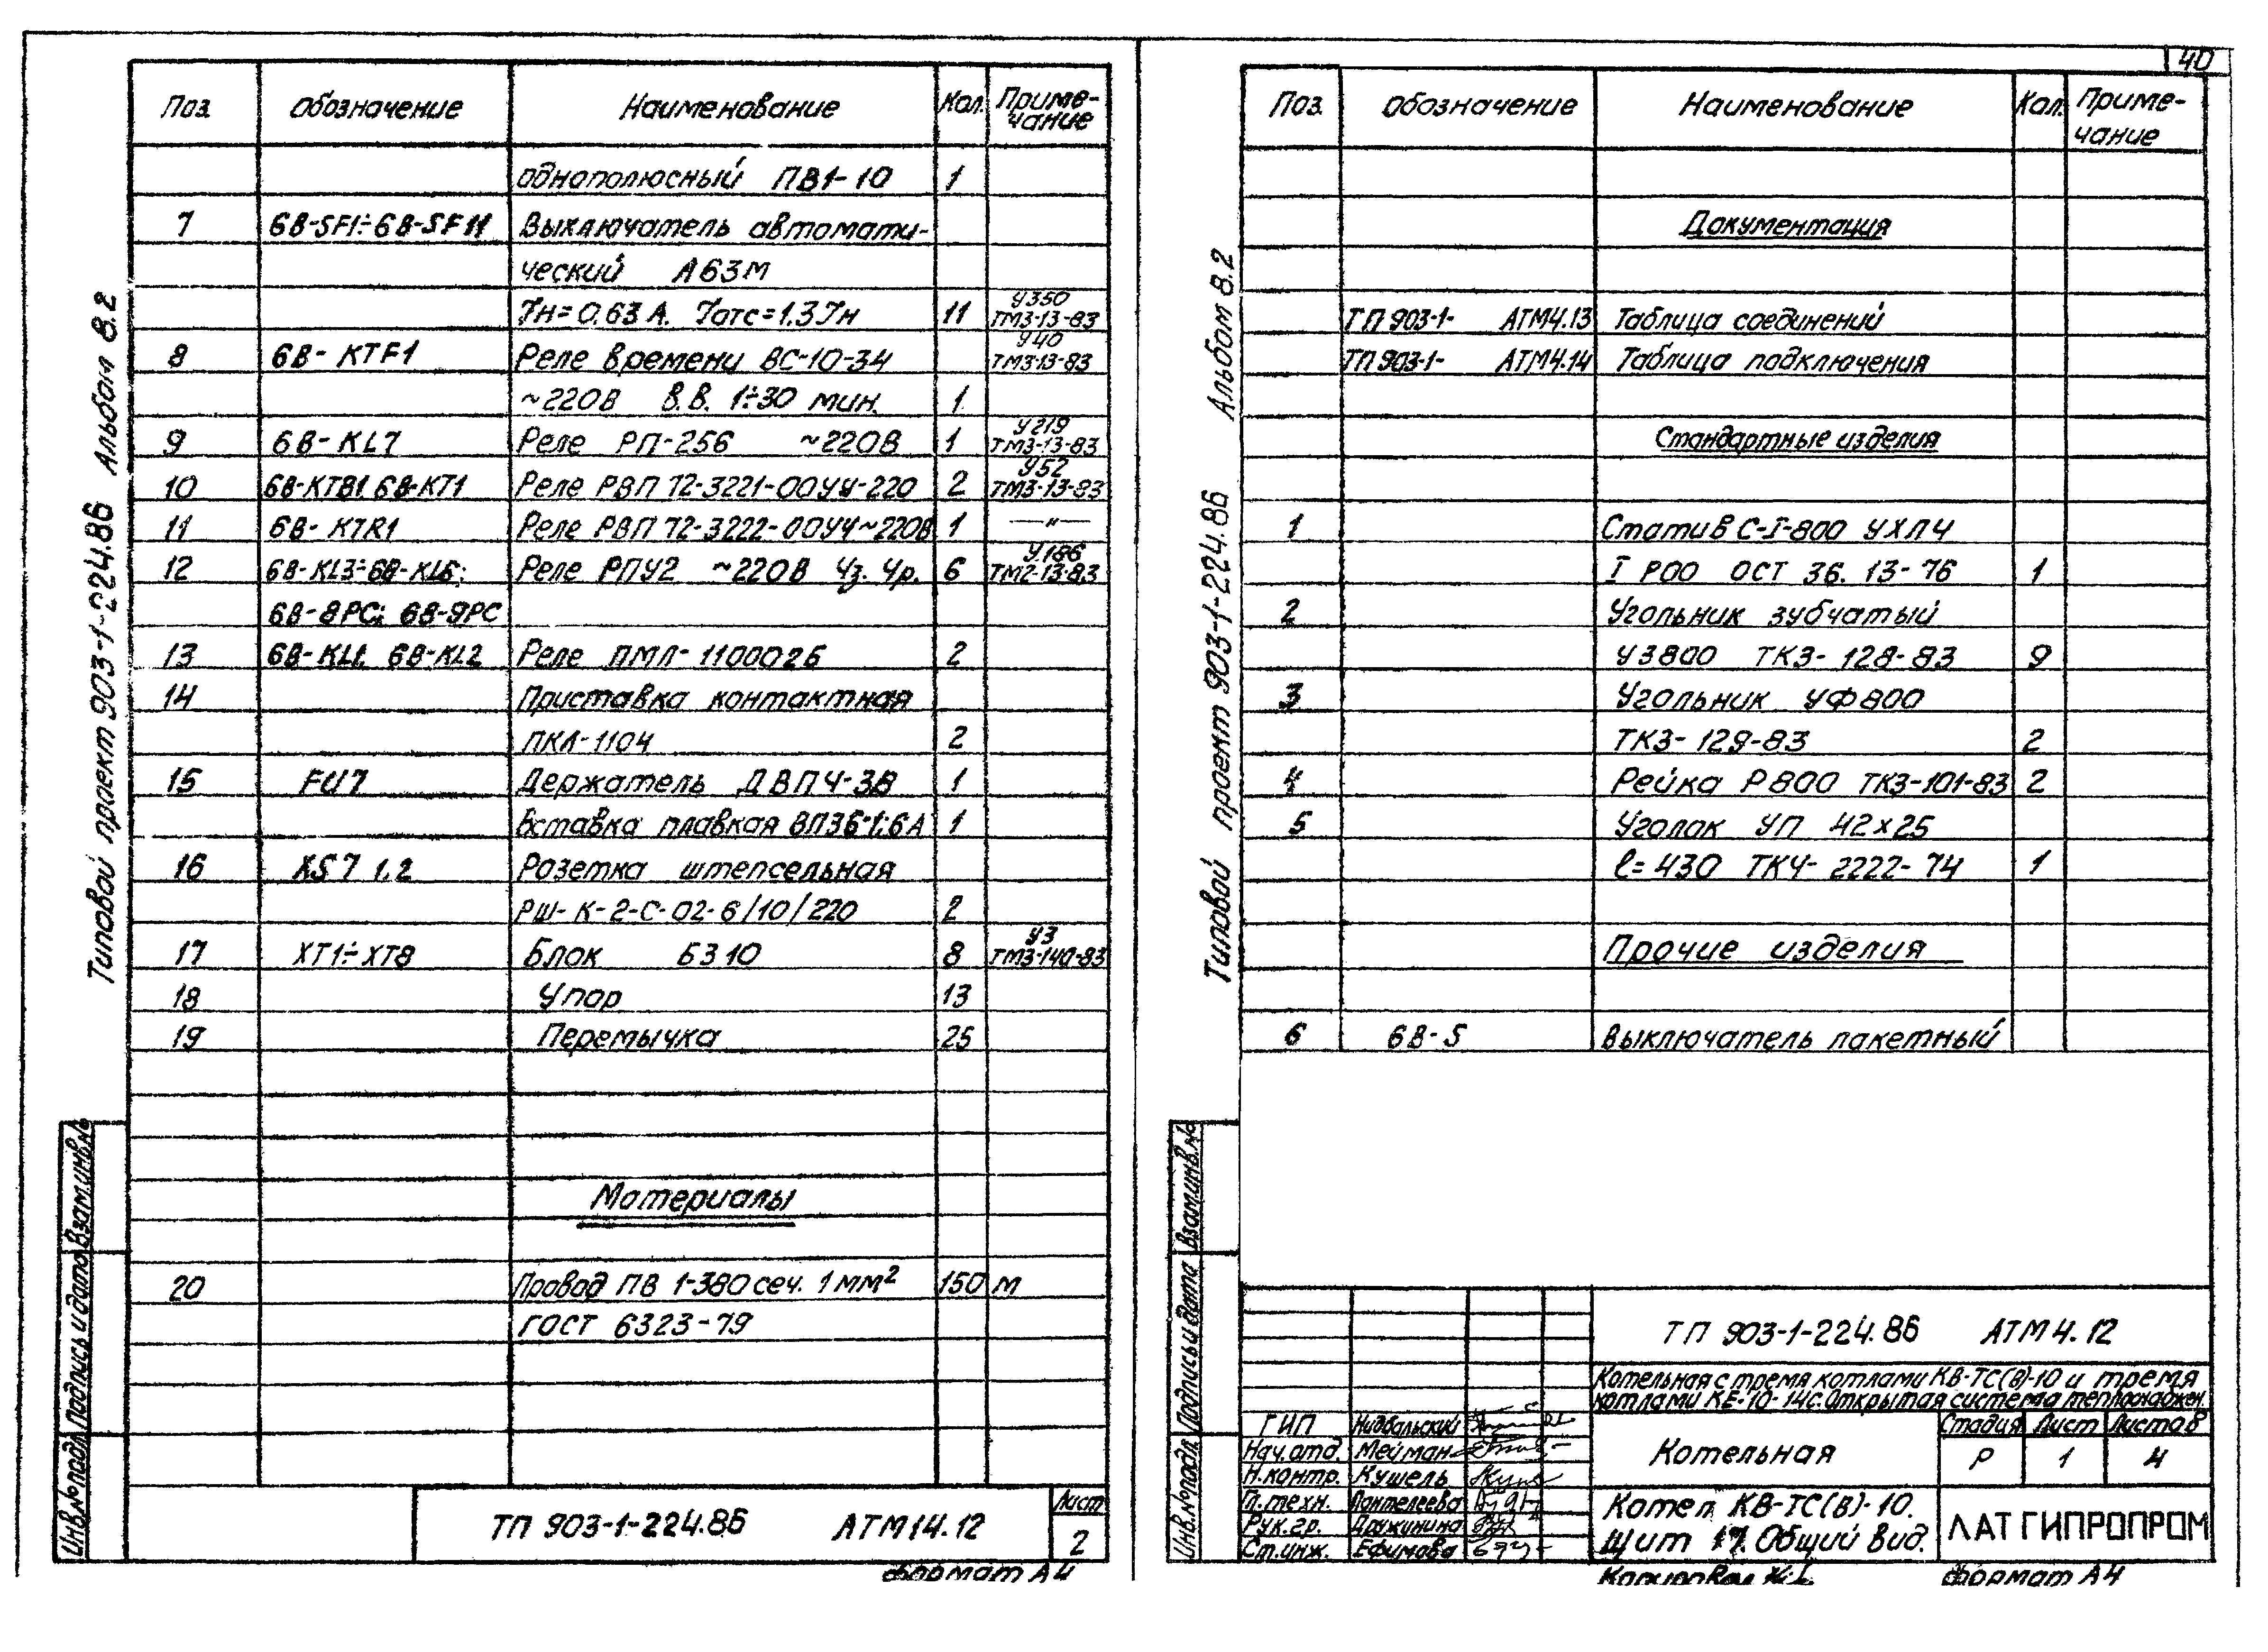 40
Типовой проект 903-1-224.86 Альбом 8.2
Поз. Обозначение Наименование Кол. Приме-
чание
однополюсный ПВ1-10 1
7 6В-SF1÷6В-SF11 Выключатель автомати-
ческий А63М
Iн=0,63А. Iотс=1.3Iн 11 У350 ТМ3-13-83
8 6В-KTF1 Реле времени ВС-10-34 У40 ТМ3-13-83
~220В В.В. 1÷30 мин. 1
9 6В-KL7 Реле РП-256 ~220В 1 У219 ТМ3-13-83
10 6В-KTВ1 6В-KT1 Реле РВП 72-3221-00У4-220 2 У52 ТМ3-13-83
11 6В-KTR1 Реле РВП 72-3222-00У4~220В 1 —"—
12 6В-KL3÷6В-KL6; Реле РПУ2 ~220В 4з. 4р. 6 У186 ТМ2-13-83
6В-8РС; 6В-9РС
13 6В-KL1; 6В-KL2 Реле ПМЛ-110002Б 2
14 Приставка контактная
ПКЛ-1104 2
15 FU7 Держатель ДВП4-3В 1
Вставка плавкая ВП3Б-1,6А 1
16 XS7 1.2 Розетка штепсельная
РШ-К-2-С-02-6/10/220 2
17 XT1÷XT8 Блок БЗ10 8 У3 ТМ3-140-83
18 Упор 13
19 Перемычка 25
Материалы
20 Провод ПВ 1-380 сеч. 1 мм² 150 м
ГОСТ 6323-79
Взам.инв.№
Подпись и дата
Инв.№ подл.
ТП 903-1-224.86 АТМ14.12
Лист
2
Формат А4
Типовой проект 903-1-224.86 Альбом 8.2
Поз. Обозначение Наименование Кол. Приме-
чание
Документация
ТП 903-1- АТМ4.13 Таблица соединений
ТП 903-1- АТМ4.14 Таблица подключения
Стандартные изделия
1 Статив С-I-800 УХЛ4
I Р00 ОСТ 36.13-76 1
2 Угольник зубчатый
УЗ800 ТК3-128-83 9
3 Угольник УФ800
ТК3-129-83 2
4 Рейка Р800 ТК3-101-83 2
5 Уголок УП 42х25
l=430 ТК4-2222-74 1
Прочие изделия
6 6В-S Выключатель пакетный
Взам.инв.№
Подпись и дата
Инв.№ подл.
ТП 903-1-224.86 АТМ4.12
Котельная с тремя котлами КВ-ТС(В)-10 и тремя
котлами КЕ-10-14с. Открытая система теплоснабжен.
ГИП Нидбальский
Нач.отд. Мейман
Н.контр. Кушель
Гл.техн. Пантелеева
Рук.гр. Дружинина
Ст.инж. Ефимова
Котельная
Стадия Лист Листов
Р 1 4
Котел КВ-ТС(В)-10.
Щит 17. Общий вид.
ЛАТГИПРОПРОМ
Копировал
Формат А4